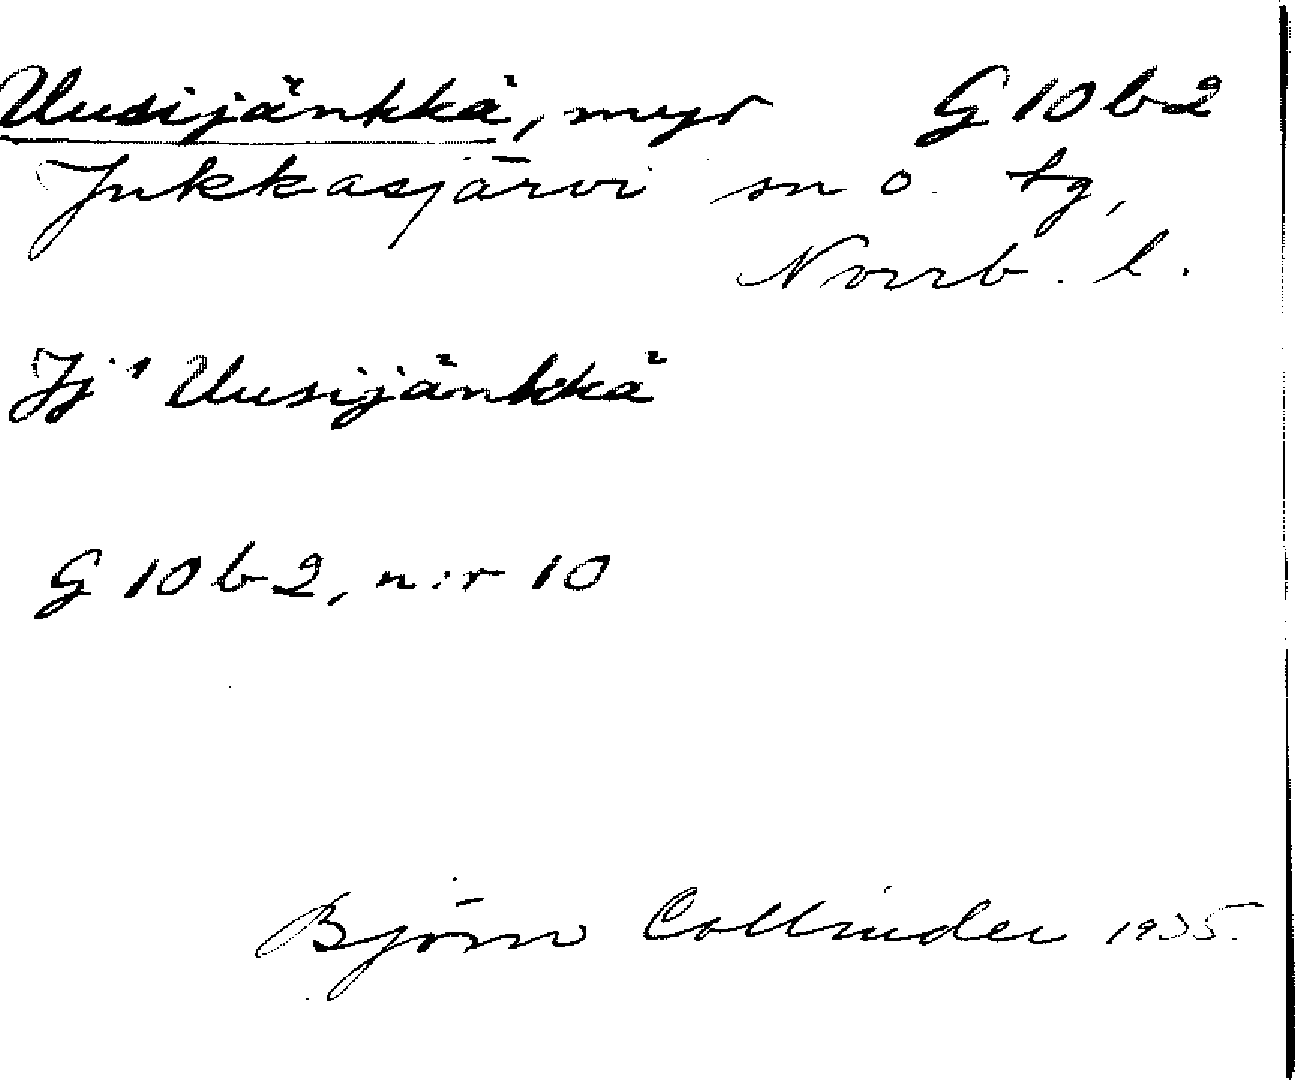 Uusijänkkä, myr G 10 b 2
Jukkasjärvi sn o. tg,
Norrb. l.
Jj¹ Uusijänkkä
G 10 b 2, n:r 10
Björn Collinder 1935.